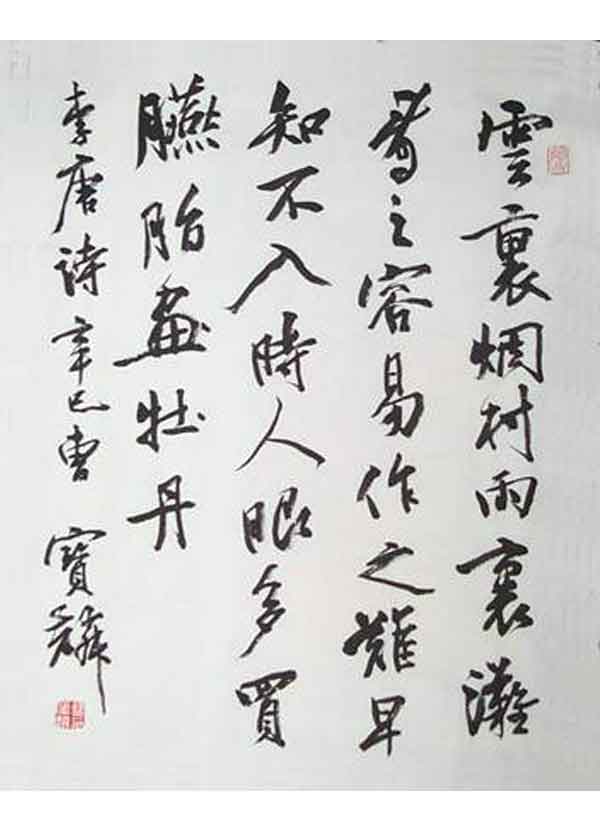 雲裏烟村雨裏灘
看之容易作之難早
知不入時人眼多買
臙脂畫牡丹
李唐詩 辛巳曹寶麟